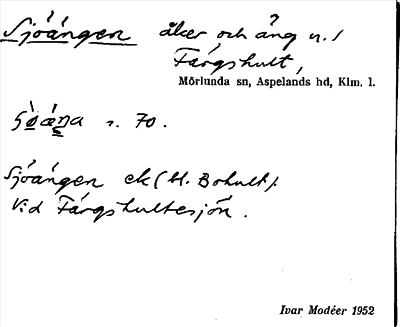 Sjöängen åker och äng n. 1
Färgshult,
Mörlunda sn, Aspelands hd, Klm. l.
s. 70.
Sjöängen ek (bl. Bohult).
Vid Färgshultesjön.
Ivar Modéer 1952